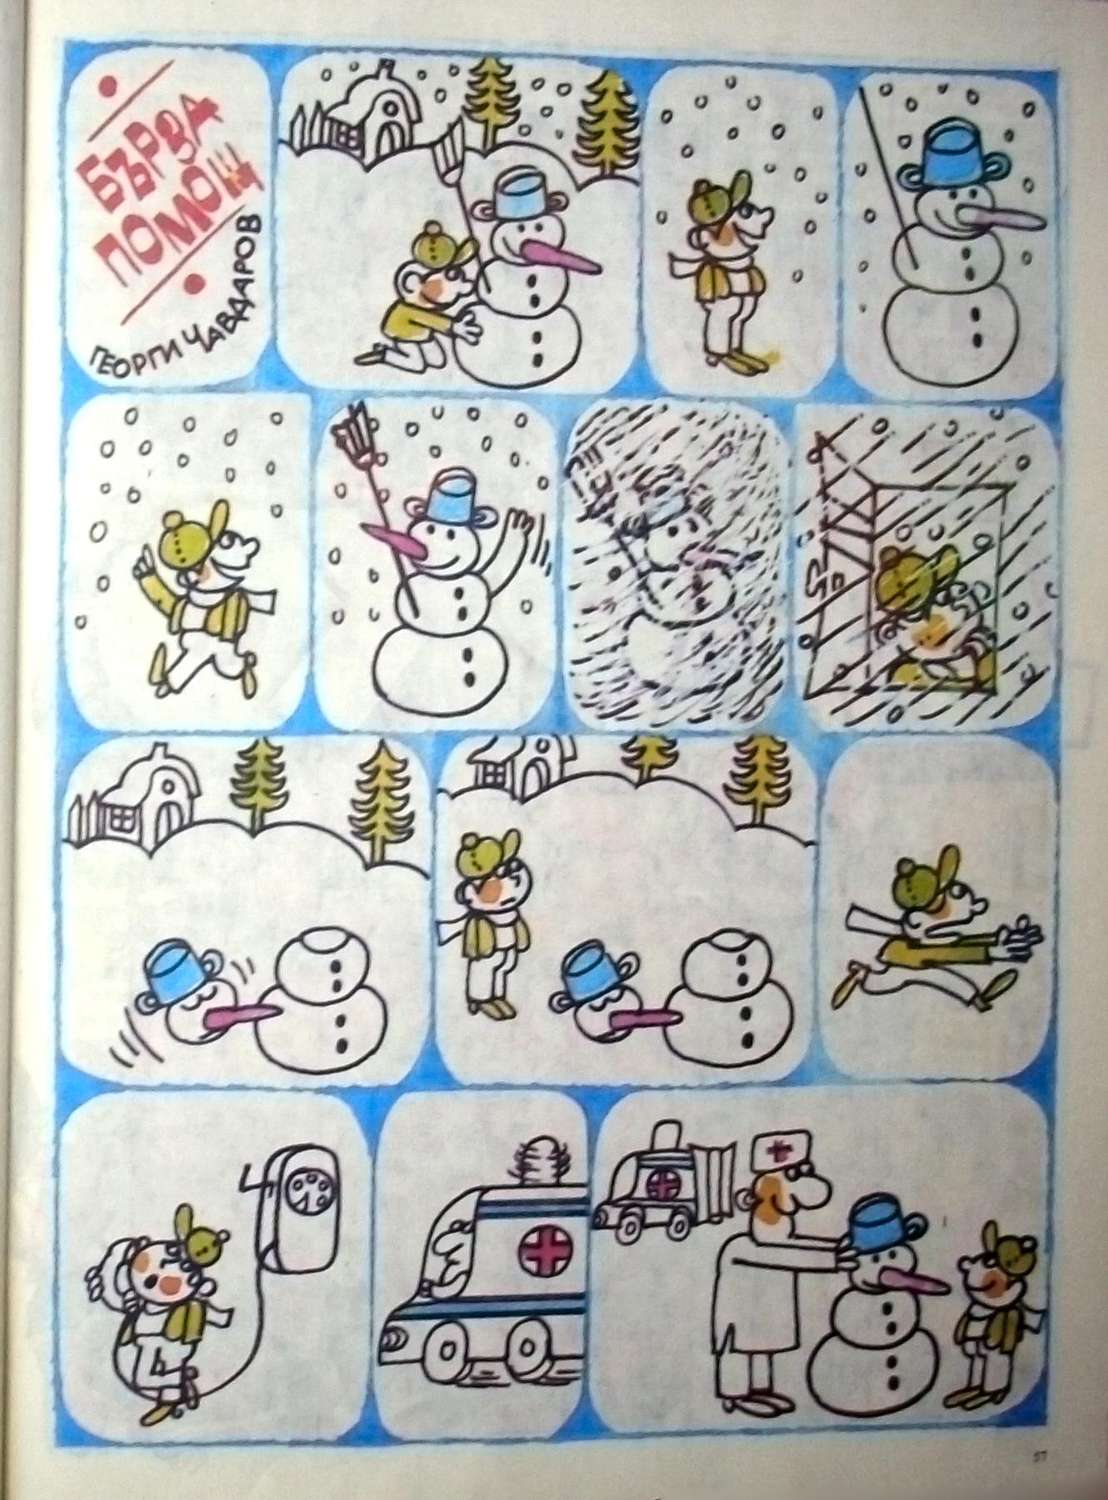 БЪРЗА
ПОМОЩ
ГЕОРГИ ЧАВДАРОВ
57